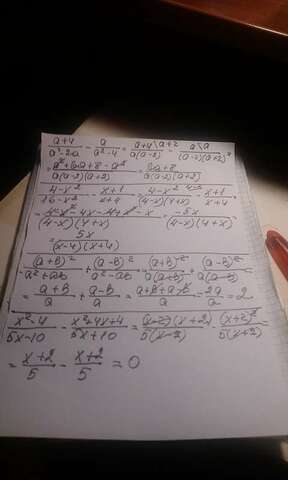 (a+4)/(a²-2a) - a/(a²-4) = (a+4\a+2)/(a(a-2)) - (a\a)/((a-2)(a+2)) =
= (a²+6a+8-a²)/(a(a-2)(a+2)) = (6a+8)/(a(a-2)(a+2))
(4-x²)/(16-x²) - (x+1)/(x+4) = (4-x²)/((4-x)(4+x)) - (x+1)/(x+4) =
= (4-x²-4x-4+x²-x)/((4-x)(4+x)) = (-5x)/((4-x)(4+x)) =
= 5x/((x-4)(x+4))
(a+b)²/(a²+ab) + (a-b)²/(a²-ab) = (a+b)²/(a(a+b)) + (a-b)²/(a(a-b)) =
= (a+b)/a + (a-b)/a = (a+b+a-b)/a = 2a/a = 2
(x²-4)/(5x-10) - (x²+4x+4)/(5x+10) = ((x-2)(x+2))/(5(x-2)) - (x+2)²/(5(x+2)) =
= (x+2)/5 - (x+2)/5 = 0